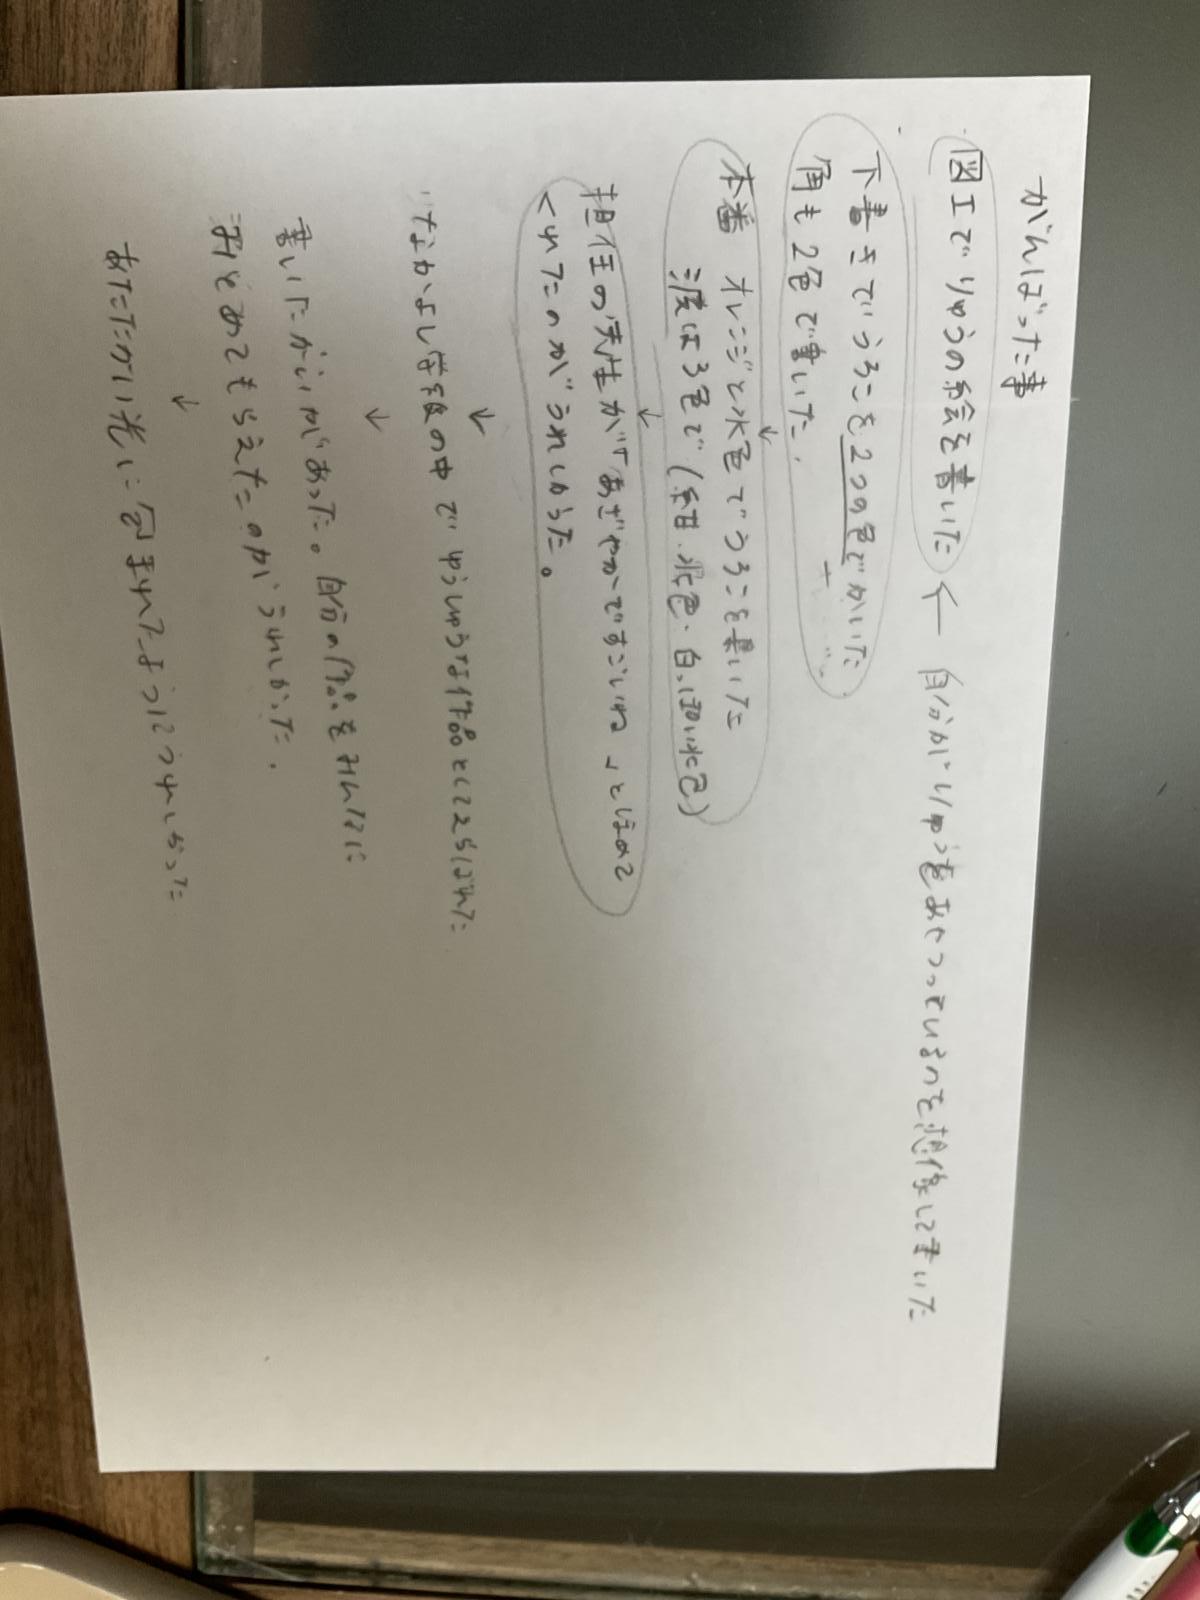 がんばった事
図工でりゅうの絵を書いた ← 自分がりゅうをあやつっているのを想像して書いた
下書きでうろこを2つの色でかいた
+
角も2色で書いた.
↓
本番 オレンジと水色でうろこを書いた
波は3色で(紺・水色・白っぽい水色)
↓
担任の先生が「あざやかですごいね」とほめて
くれたのがうれしかった。
↓
なかよし学級の中でゆうしゅうな作品としてえらばれた
↓
書いたかいがあった。自分の作品をみんなに
みとめてもらえたのがうれしかった.
↓
あたたかい光に包まれたようにうれしかった